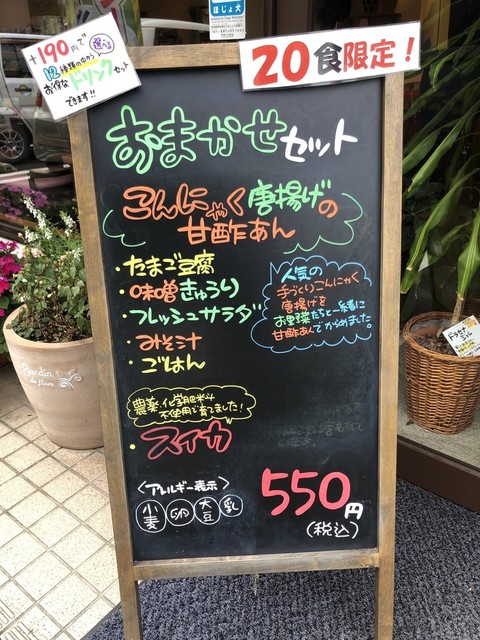 ほじょ犬
+190円で
12種類の中から選べる
お得なドリンクセット
できます!!
20食限定!
おまかせセット
こんにゃく唐揚げの
甘酢あん
・たまご豆腐
・味噌きゅうり
・フレッシュサラダ
・みそ汁
・ごはん
人気の
手づくりこんにゃく
唐揚げを
お野菜たちと一緒に
甘酢あんでからめました。
農薬、化学肥料
不使用で育てました!
・スイカ
<アレルギー表示>
小麦 卵 大豆 乳
550円
(税込)
Jardin
de fleurs
ドラセナ